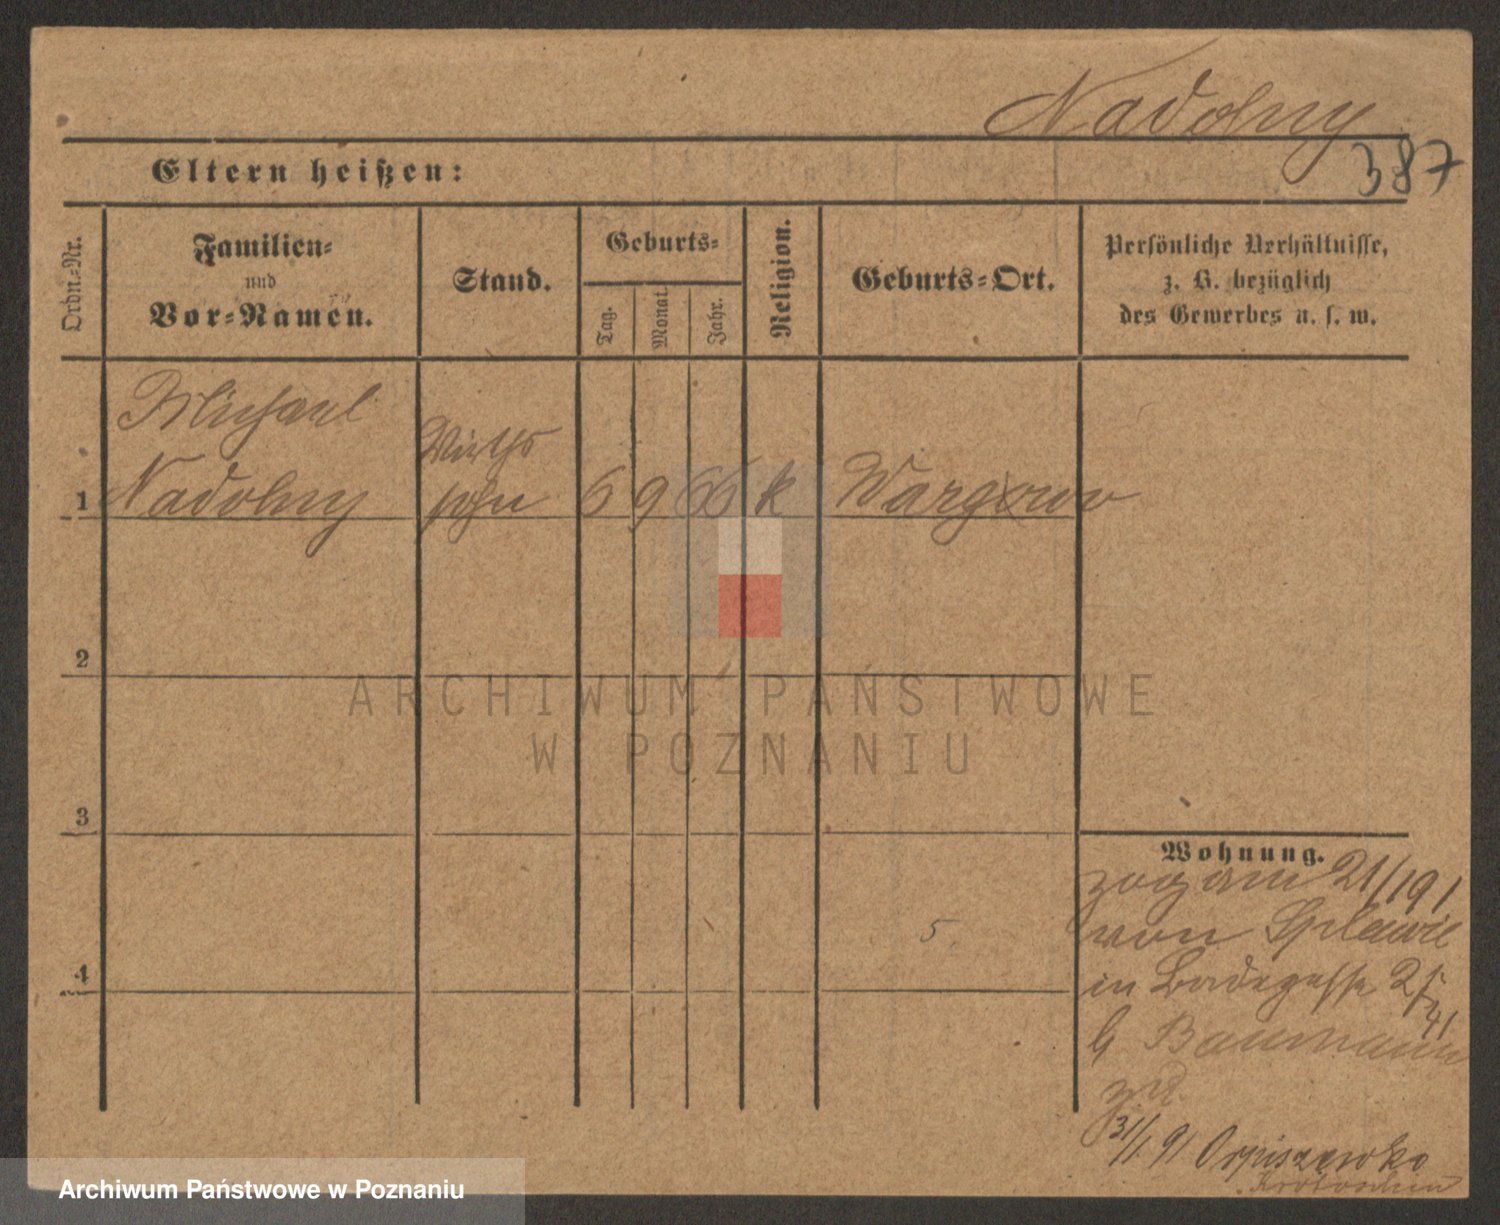 Nadolny
387
Eltern heißen:
Ordn.-Nr.
Familien-
und
Vor-Namen.
Stand.
Geburts-
Tag.
Monat.
Jahr.
Religion.
Geburts-Ort.
Persönliche Verhältnisse,
z. B. bezüglich
des Gewerbes u. s. w.
Michael
Nadolny
Wirths
sohn
1
6 9 66 k
2
ARCHIWUM PAŃSTWOWE
W POZNANIU
3
Wohnung.
zog am 21/1 91
von
5
4
in Badegasse 2
b Baumann
31/1. 91 Orpiszewko
Krotoschin
Archiwum Państwowe w Poznaniu